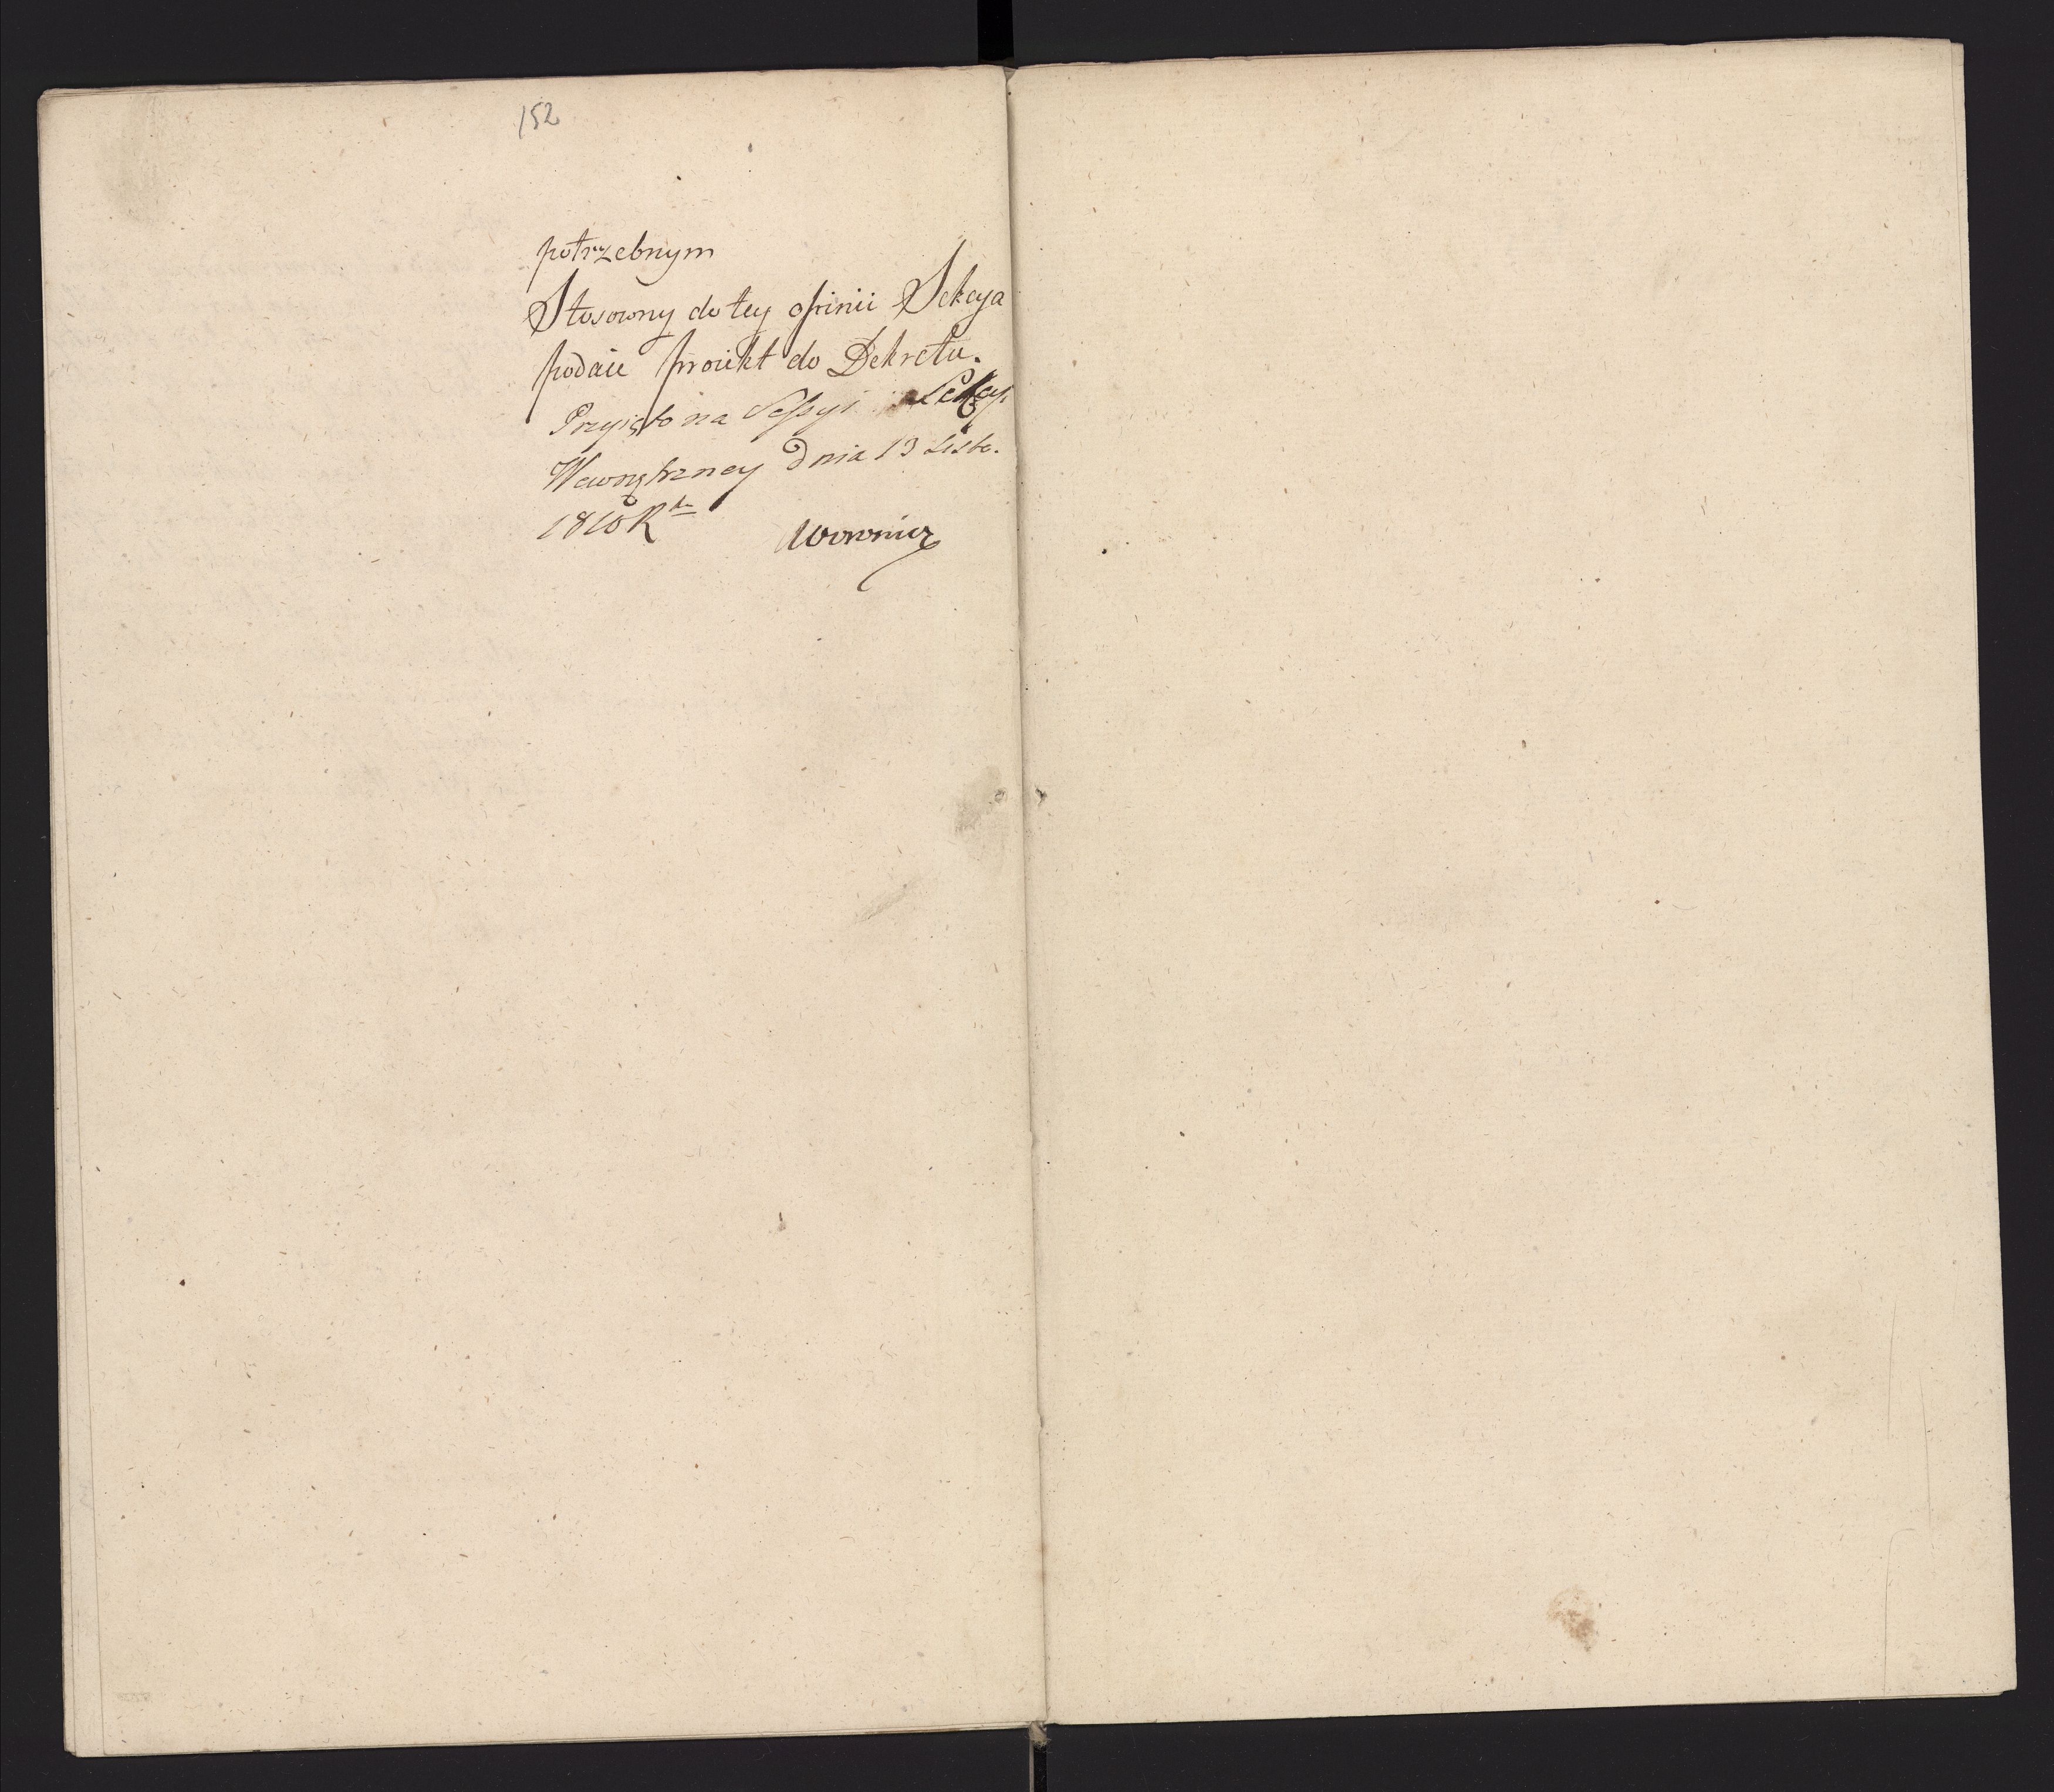 152
potrzebnym
Stosowny do tey opinii Sekcya
podaie proiekt do Dekretu.
Przyięto na Sessyi Sekcyi
Wewnętrzney dnia 13 Listo.
1810 Rku